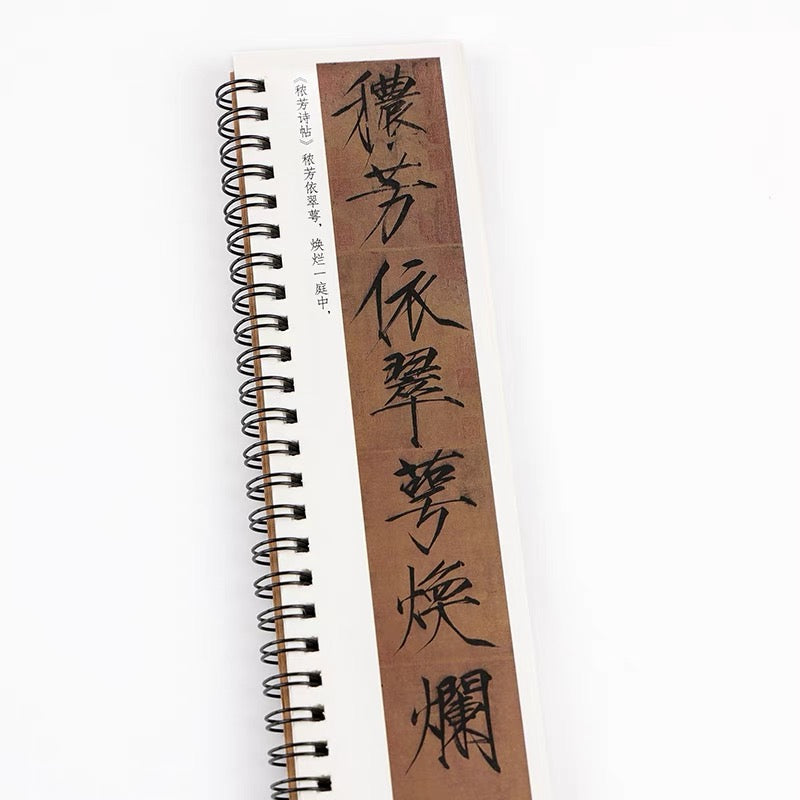 《秾芳诗帖》 秾芳依翠萼，焕烂一庭中，
穠芳依翠萼煥爛